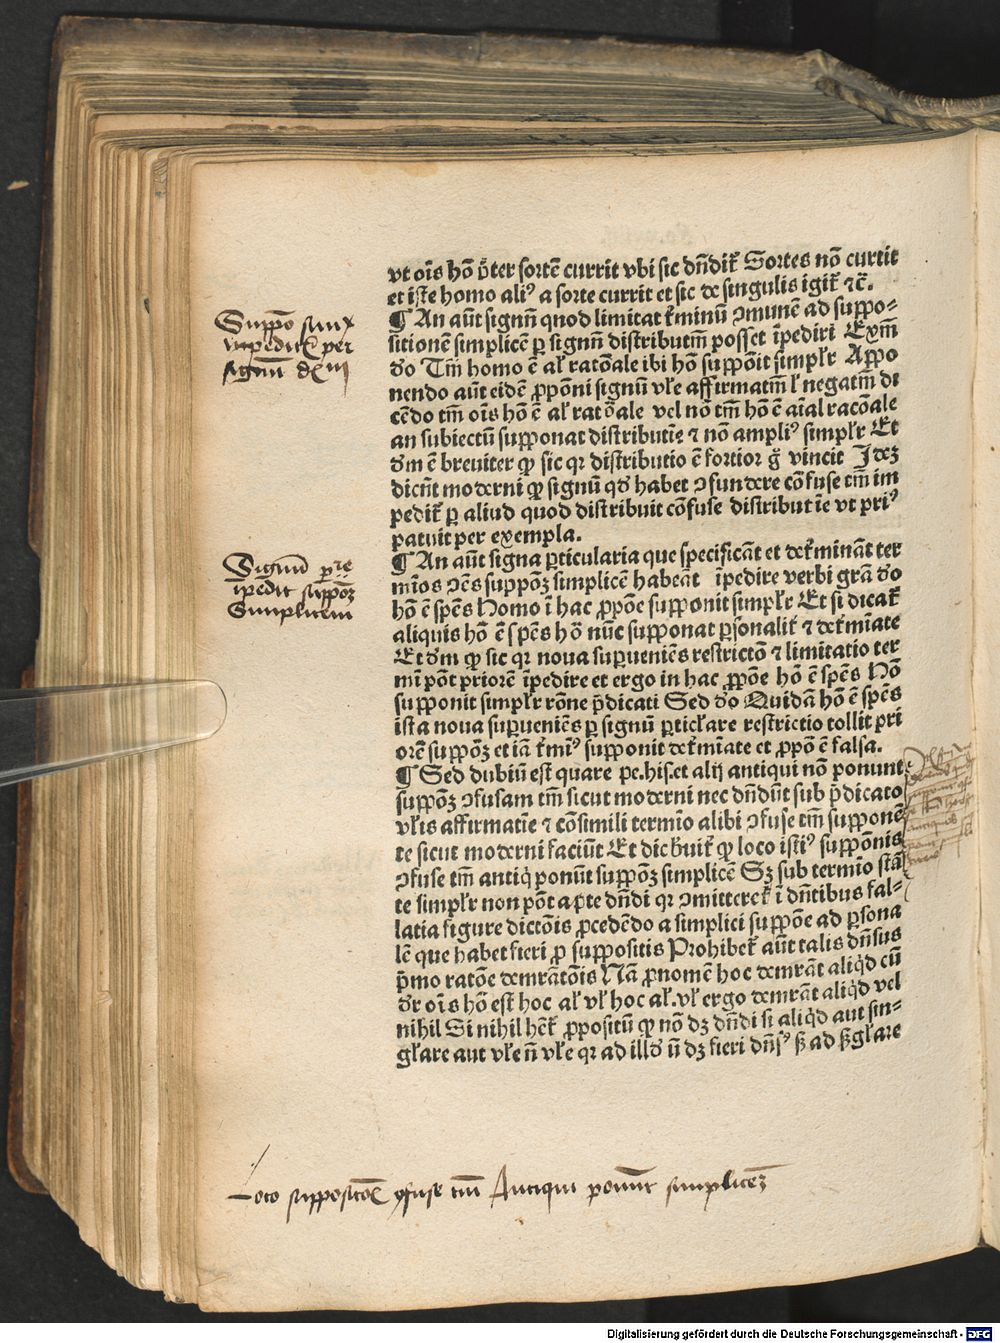 vt oīs hō p̄ter sortē currit vbi sic dn̄dit᷑ Sortes nō currit
et iste homo aliꝰ a sorte currit et sic de singulis igit᷑ ⁊c̄.
¶ An aūt signū quod limitat t᷑minū ꝯmunē ad suppo⸗
sitionē simplicē ꝑ signū distributiuū posset īpediri Exm̄
do Tm̄ homo ē al᷑ ratōnale ibi hō suppōit simplr̄ Appo
nendo aūt eidē ꝓpōni signū vl᷑e affirmatm̄ l᷑ negatm̄ di
cēdo tm̄ oīs hō ē al᷑ ratōale vel nō tm̄ hō ē aīal racōnale
an subiectū supponat distributīe ⁊ nō ampliꝰ simplr̄ Et
dm̄ ē breuiter ꝙ sic qr distributio ē fortior g̊ vincit Idēꝫ
dicūt moderni ꝙ signū qd̄ habet ꝯfundere cōfuse tm̄ im
pedit᷑ ꝑ aliud quod distribuit cōfuse distributīe vt priꝰ
patuit per exempla.
¶ An aūt signa ꝑticularia que specificāt et det᷑mināt ter
mīos ꝯēs suppōꝫ simplicē habeāt īpedire verbi grā do
hō ē spēs Homo ī hac ꝓpōe supponit simplr̄ Et si dicat᷑
aliquis hō ē spēs hō nūc supponat ꝑsonalit᷑ ⁊ det᷑mīate
Et dm̄ ꝙ sic qr noua suꝑueniēs restrictō ⁊ limitatio ter
mī pōt priorē īpedire et ergo in hac ꝓpōe hō ē spēs Hō
supponit simplr̄ rōne p̄dicati Sed do Quidā hō ē spēs
ista noua suꝑueniēs ꝑ signū ꝑticl᷑are restrictio tollit pri
orē suppōꝫ et iā t᷑miꝰ supponit det᷑mīate et ꝓpō ē falsa.
¶ Sed dubiū est quare pe.his.et alij antiqui nō ponunt
suppōꝫ ꝯfusam tm̄ sicut moderni nec dn̄dūt sub p̄dicato
vl᷑is affirmatīe ⁊ cōsimili termīo alibi ꝯfuse tm̄ supponē
te sicut moderni faciūt Et dicēdū ꝙ loco istiꝰ suppōnis
ꝯfuse tm̄ antiqi ponūt suppōꝫ simplicē Sꝫ sub termīo stā
te simplr̄ non pōt aꝑte dn̄di qr ꝯmitteret᷑ ī dn̄tibus fal⸗
latia figure dictōis ꝓcedēdo a simplici suppōe ad ꝑsona
lē que habet fieri ꝓ suppositis Prohibet᷑ aūt talis dn̄sus
p̄mo ratōe demrātōis Nā ꝓnomē hoc demrāt aliqd cū
dr̄ oīs hō est hoc al᷑ vl᷑ hoc al᷑.vl᷑ ergo demrāt aliqd vel
nihil Si nihil hēt᷑ ꝓpositū ꝙ nō dꝫ dn̄di si aliqd aut sin⸗
gl᷑are aut vl᷑e n̄ vl᷑e qr ad illd̄ n̄ dꝫ fieri dn̄sꝰ sꝫ ad sigl᷑are
Signū ꝑ͛re
īpedit suppōꝫ
Simplicem
Loco suppositōis ꝯfuse tm̄ Antiqui ponunt simplicēꝫ
Digitalisierung gefördert durch die Deutsche Forschungsgemeinschaft - DFG